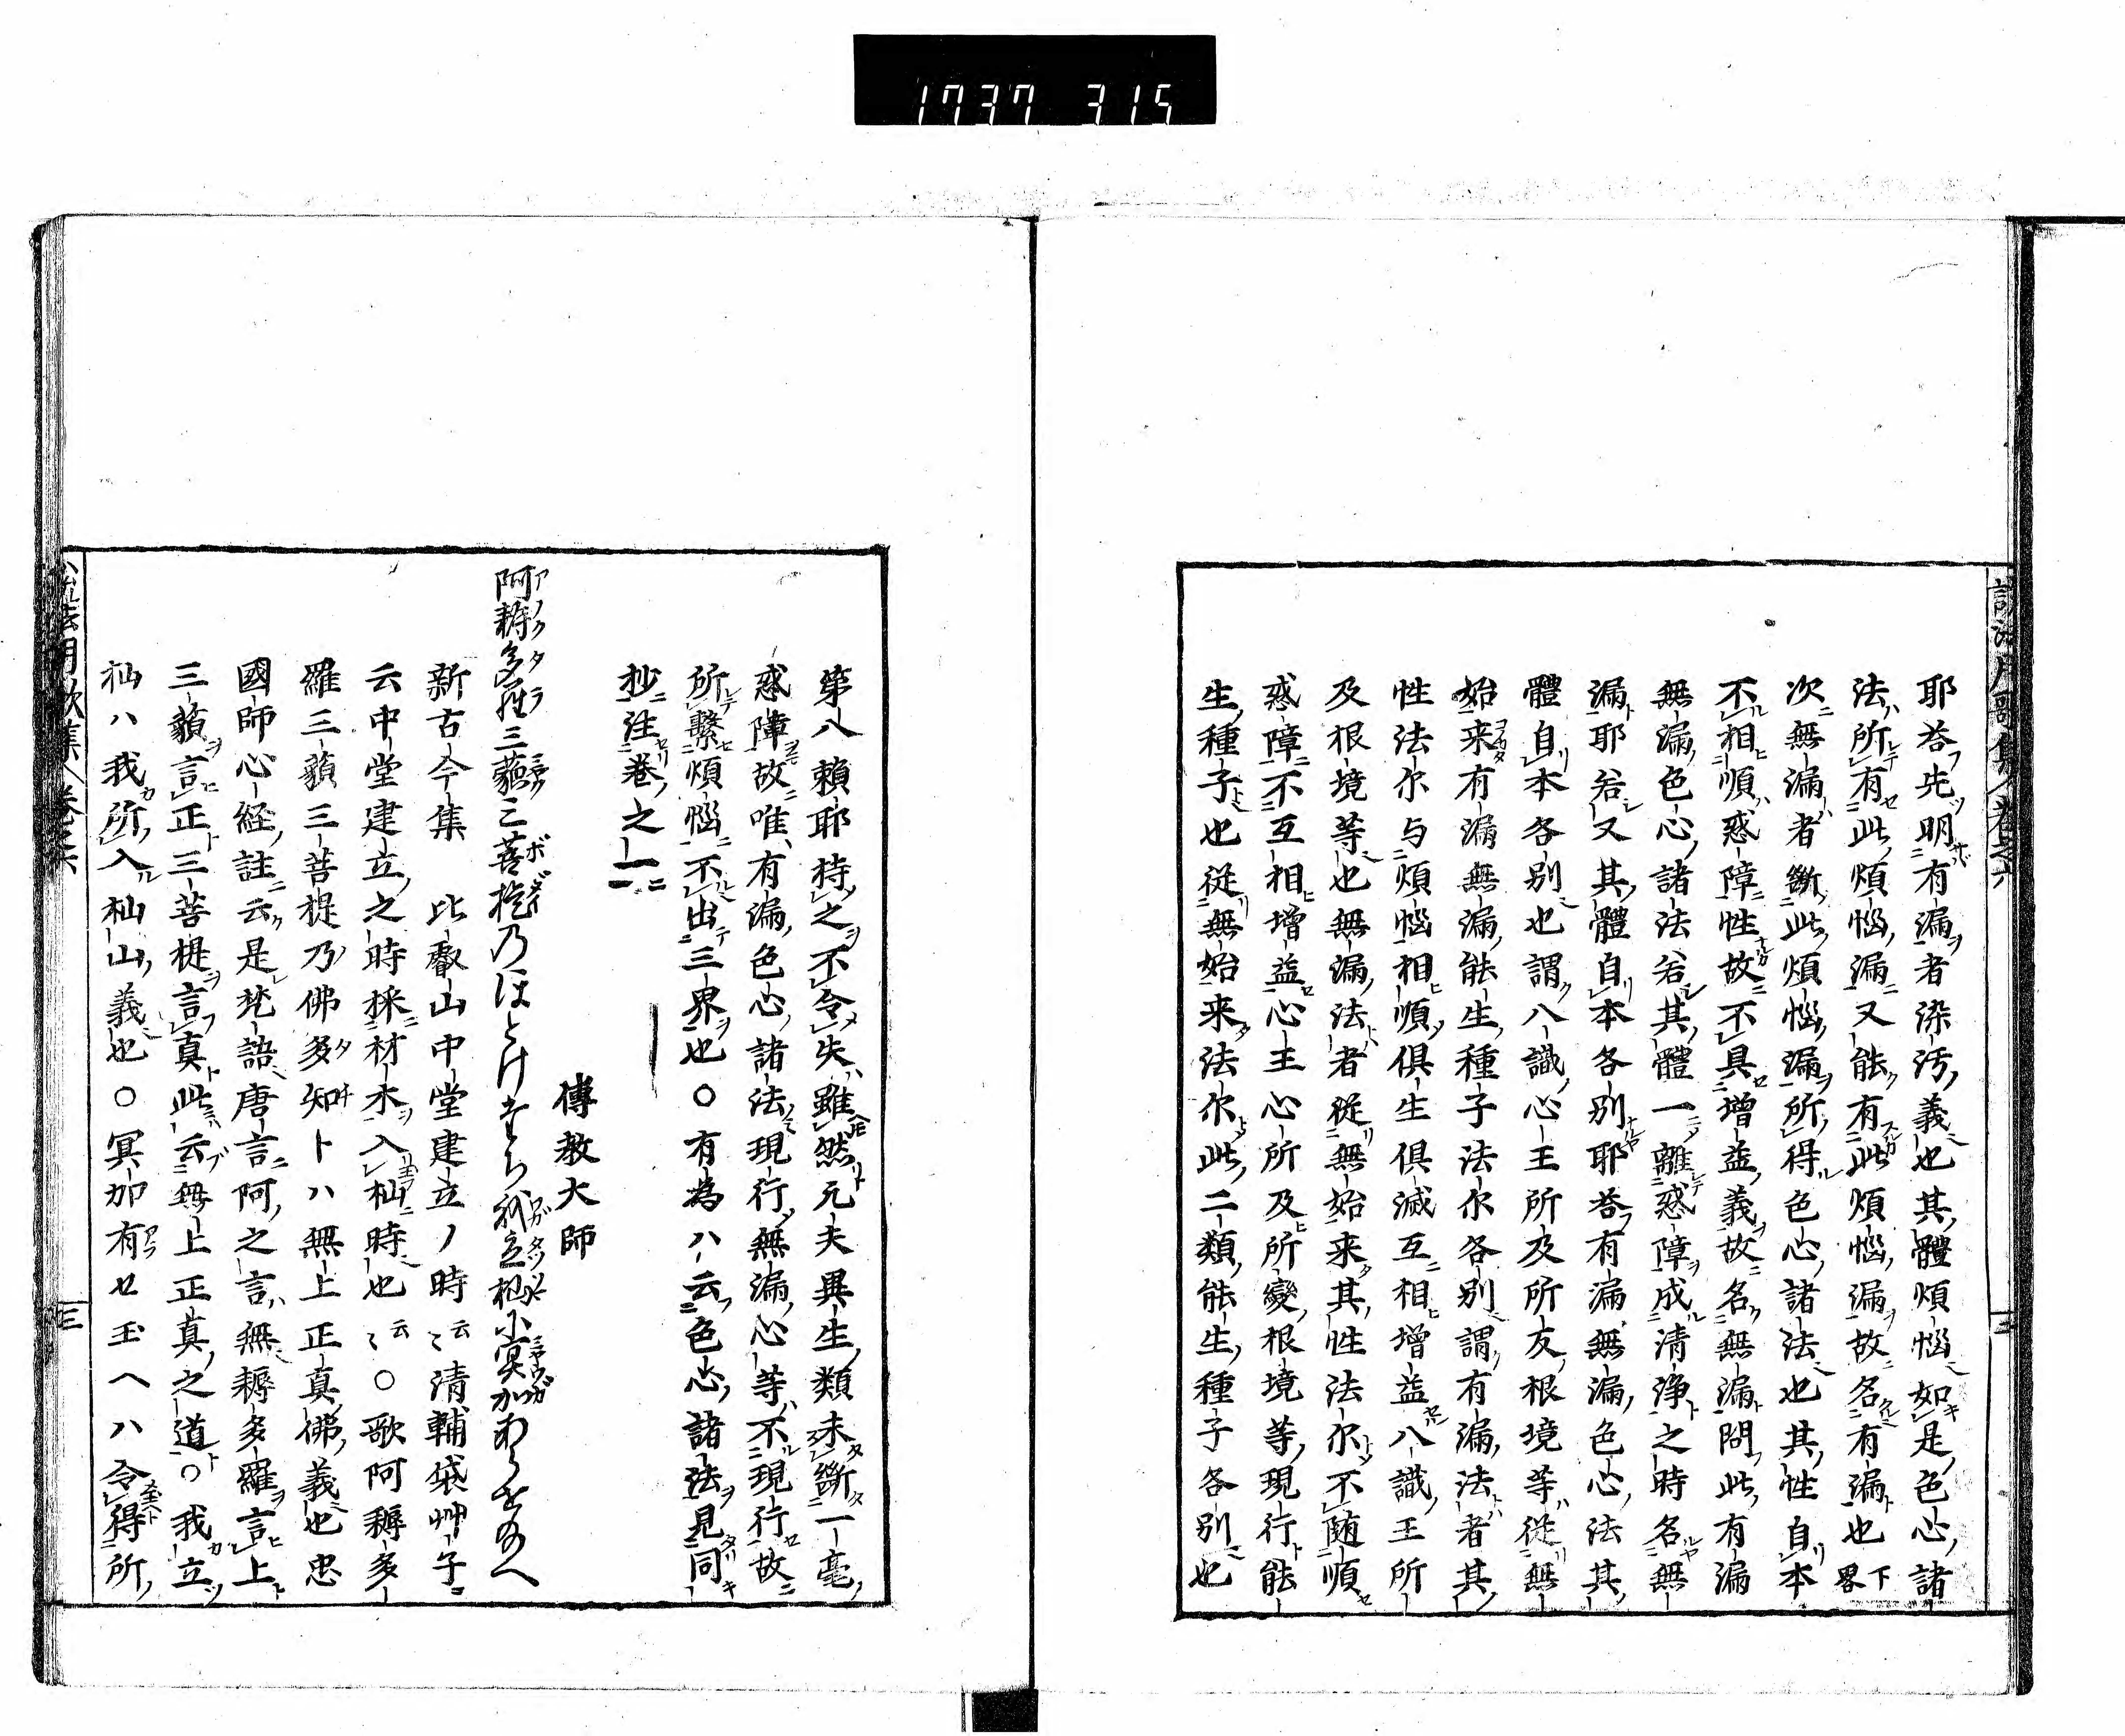 1737 315
耶答先明有漏者染汚義也其體煩惱如是色心諸
法所有此煩惱漏又能有此煩惱漏故名有漏也下畧
次無漏者斷此煩惱漏所得色心諸法也其性自本
不相順惑障性故不具增益義故名無漏問此有漏
無漏色心諸法若其體一離惑障成清淨之時名無
漏耶若又其體自本各別耶答有漏無漏色心法其
體自本各別也謂八識心王所及所友根境等從無
始来有漏無漏能生種子法尓各別謂有漏法者其
性法尓与煩惱相順俱生俱滅互相增益八識王所
及根境等也無漏法者從無始来其性法尓不随順
惑障不互相增益心王心所及所變根境等現行能
生種子也從無始来法尓此二類能生種子各別也
第八賴耶持之不令失雖然元夫異生類未斷一毫
惑障故唯有漏色心諸法現行無漏心等不現行故
所繫煩惱不出三界也〇有為ハ云色心諸法見同
抄註卷之二
傳教大師
阿耨多羅三藐三菩提乃ほとけたち我立杣に冥加あらせたまへ
新古今集 比叡山中堂建立ノ時云〻清輔袋艸子
云中堂建立之時採材木入杣時也云〻〇歌阿耨多
羅三藐三菩提乃佛多知トハ無上正真佛義也忠
國師心経註云是梵語唐言阿之言無耨多羅言上
三藐言正三菩提言真此云無上正真之道〇我立
杣ハ我所入杣山義也〇冥加有セ玉ヘハ令得所
三